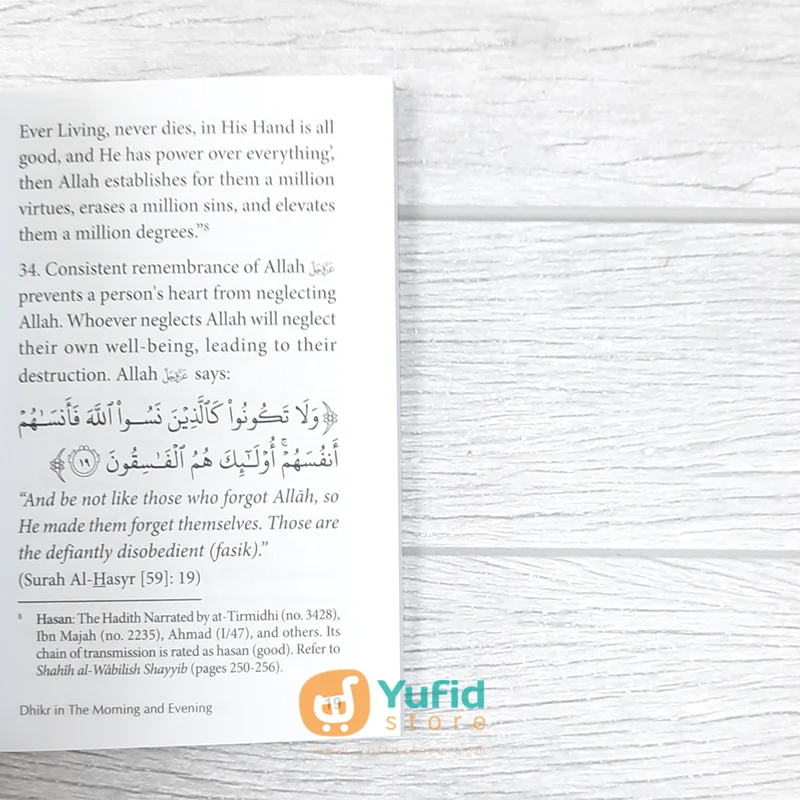 Ever Living, never dies, in His Hand is all
good, and He has power over everything’,
then Allah establishes for them a million
virtues, erases a million sins, and elevates
them a million degrees.”⁸
34. Consistent remembrance of Allah عَزَّوَجَلَّ
prevents a person's heart from neglecting
Allah. Whoever neglects Allah will neglect
their own well-being, leading to their
destruction. Allah عَزَّوَجَلَّ says:
﴿وَلَا تَكُونُوا۟ كَٱلَّذِينَ نَسُوا۟ ٱللَّهَ فَأَنسَىٰهُمْ
أَنفُسَهُمْ ۚ أُو۟لَـٰٓئِكَ هُمُ ٱلْفَـٰسِقُونَ ١٩﴾
“And be not like those who forgot Allāh, so
He made them forget themselves. Those are
the defiantly disobedient (fasik).”
(Surah Al-Hasyr [59]: 19)
⁸ Hasan: The Hadith Narrated by at-Tirmidhi (no. 3428),
Ibn Majah (no. 2235), Ahmad (I/47), and others. Its
chain of transmission is rated as hasan (good). Refer to
Shahîh al-Wâbilish Shayyib (pages 250-256).
Dhikr in The Morning and Evening 19
Yufid
store
www.yufidstore.com